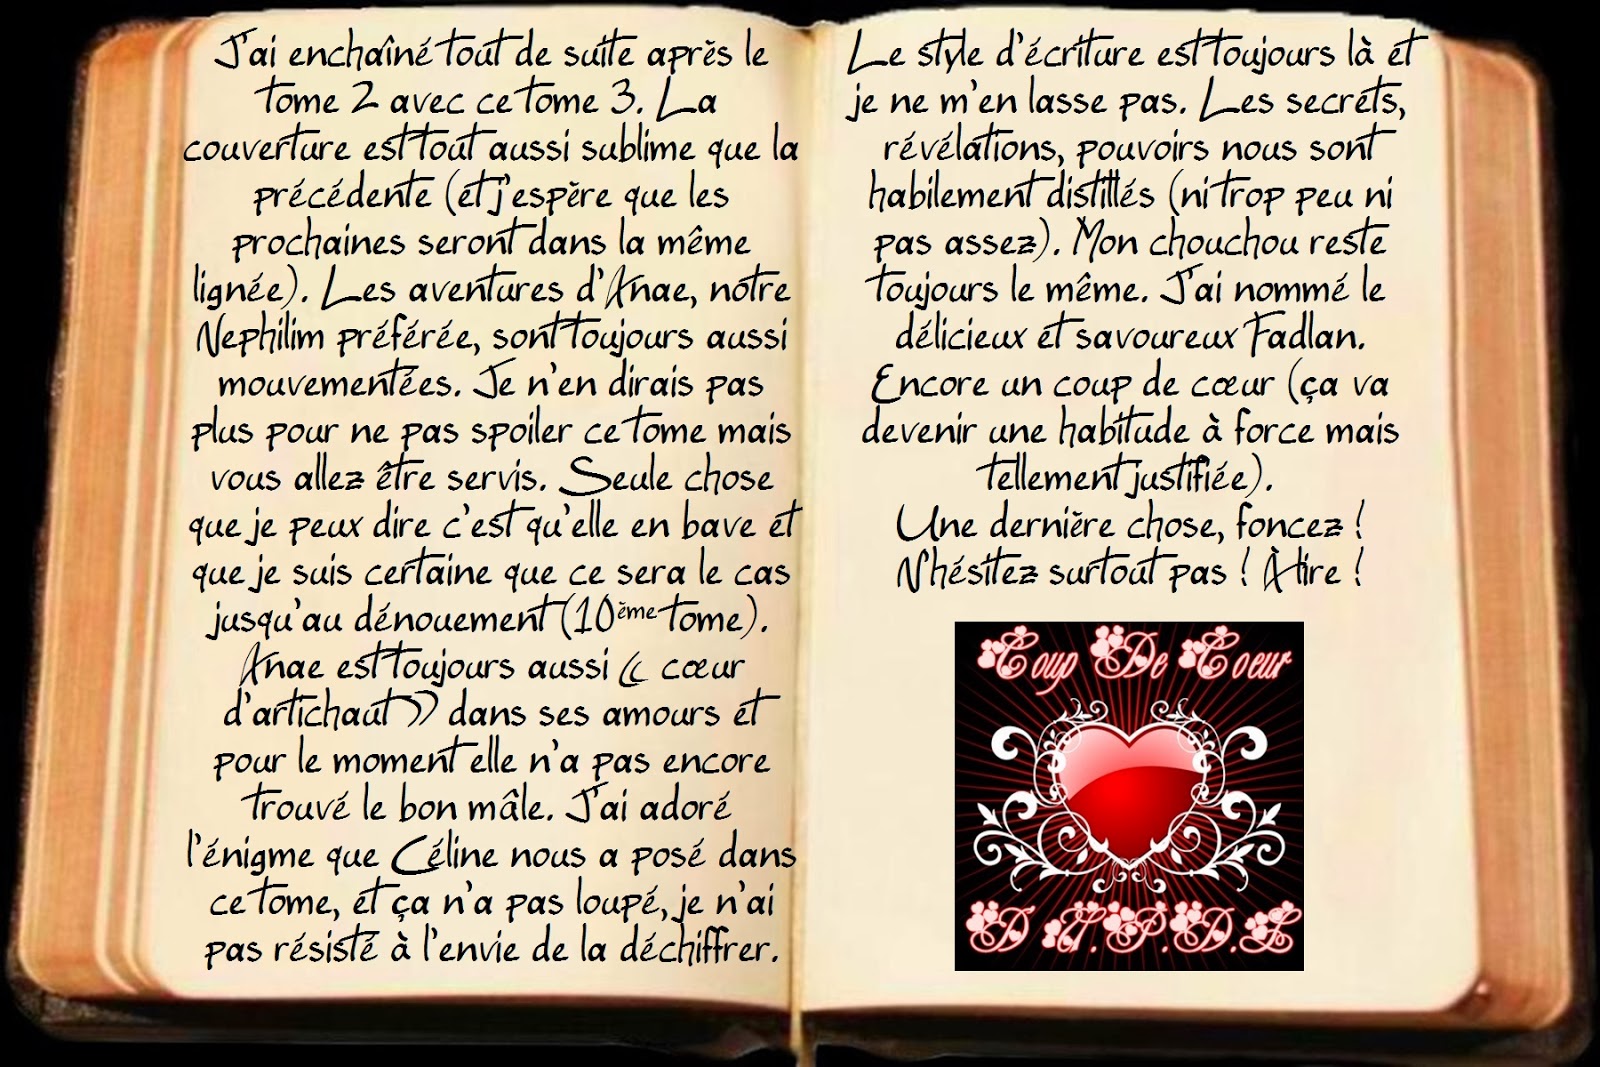 J'ai enchaîné tout de suite après le
tome 2 avec ce tome 3. La
couverture est tout aussi sublime que la
précédente (et j'espère que les
prochaines seront dans la même
lignée). Les aventures d'Anae, notre
Nephilim préférée, sont toujours aussi
mouvementées. Je n'en dirais pas
plus pour ne pas spoiler ce tome mais
vous allez être servis. Seule chose
que je peux dire c'est qu'elle en bave et
que je suis certaine que ce sera le cas
jusqu'au dénouement (10ème tome).
Anae est toujours aussi « cœur
d'artichaut » dans ses amours et
pour le moment elle n'a pas encore
trouvé le bon mâle. J'ai adoré
l'énigme que Céline nous a posé dans
ce tome, et ça n'a pas loupé, je n'ai
pas résisté à l'envie de la déchiffrer.
Le style d'écriture est toujours là et
je ne m'en lasse pas. Les secrets,
révélations, pouvoirs nous sont
habilement distillés (ni trop peu ni
pas assez). Mon chouchou reste
toujours le même. J'ai nommé le
délicieux et savoureux Fadlan.
Encore un coup de cœur (ça va
devenir une habitude à force mais
tellement justifiée).
Une dernière chose, foncez !
N'hésitez surtout pas ! À lire !
Coup De Coeur